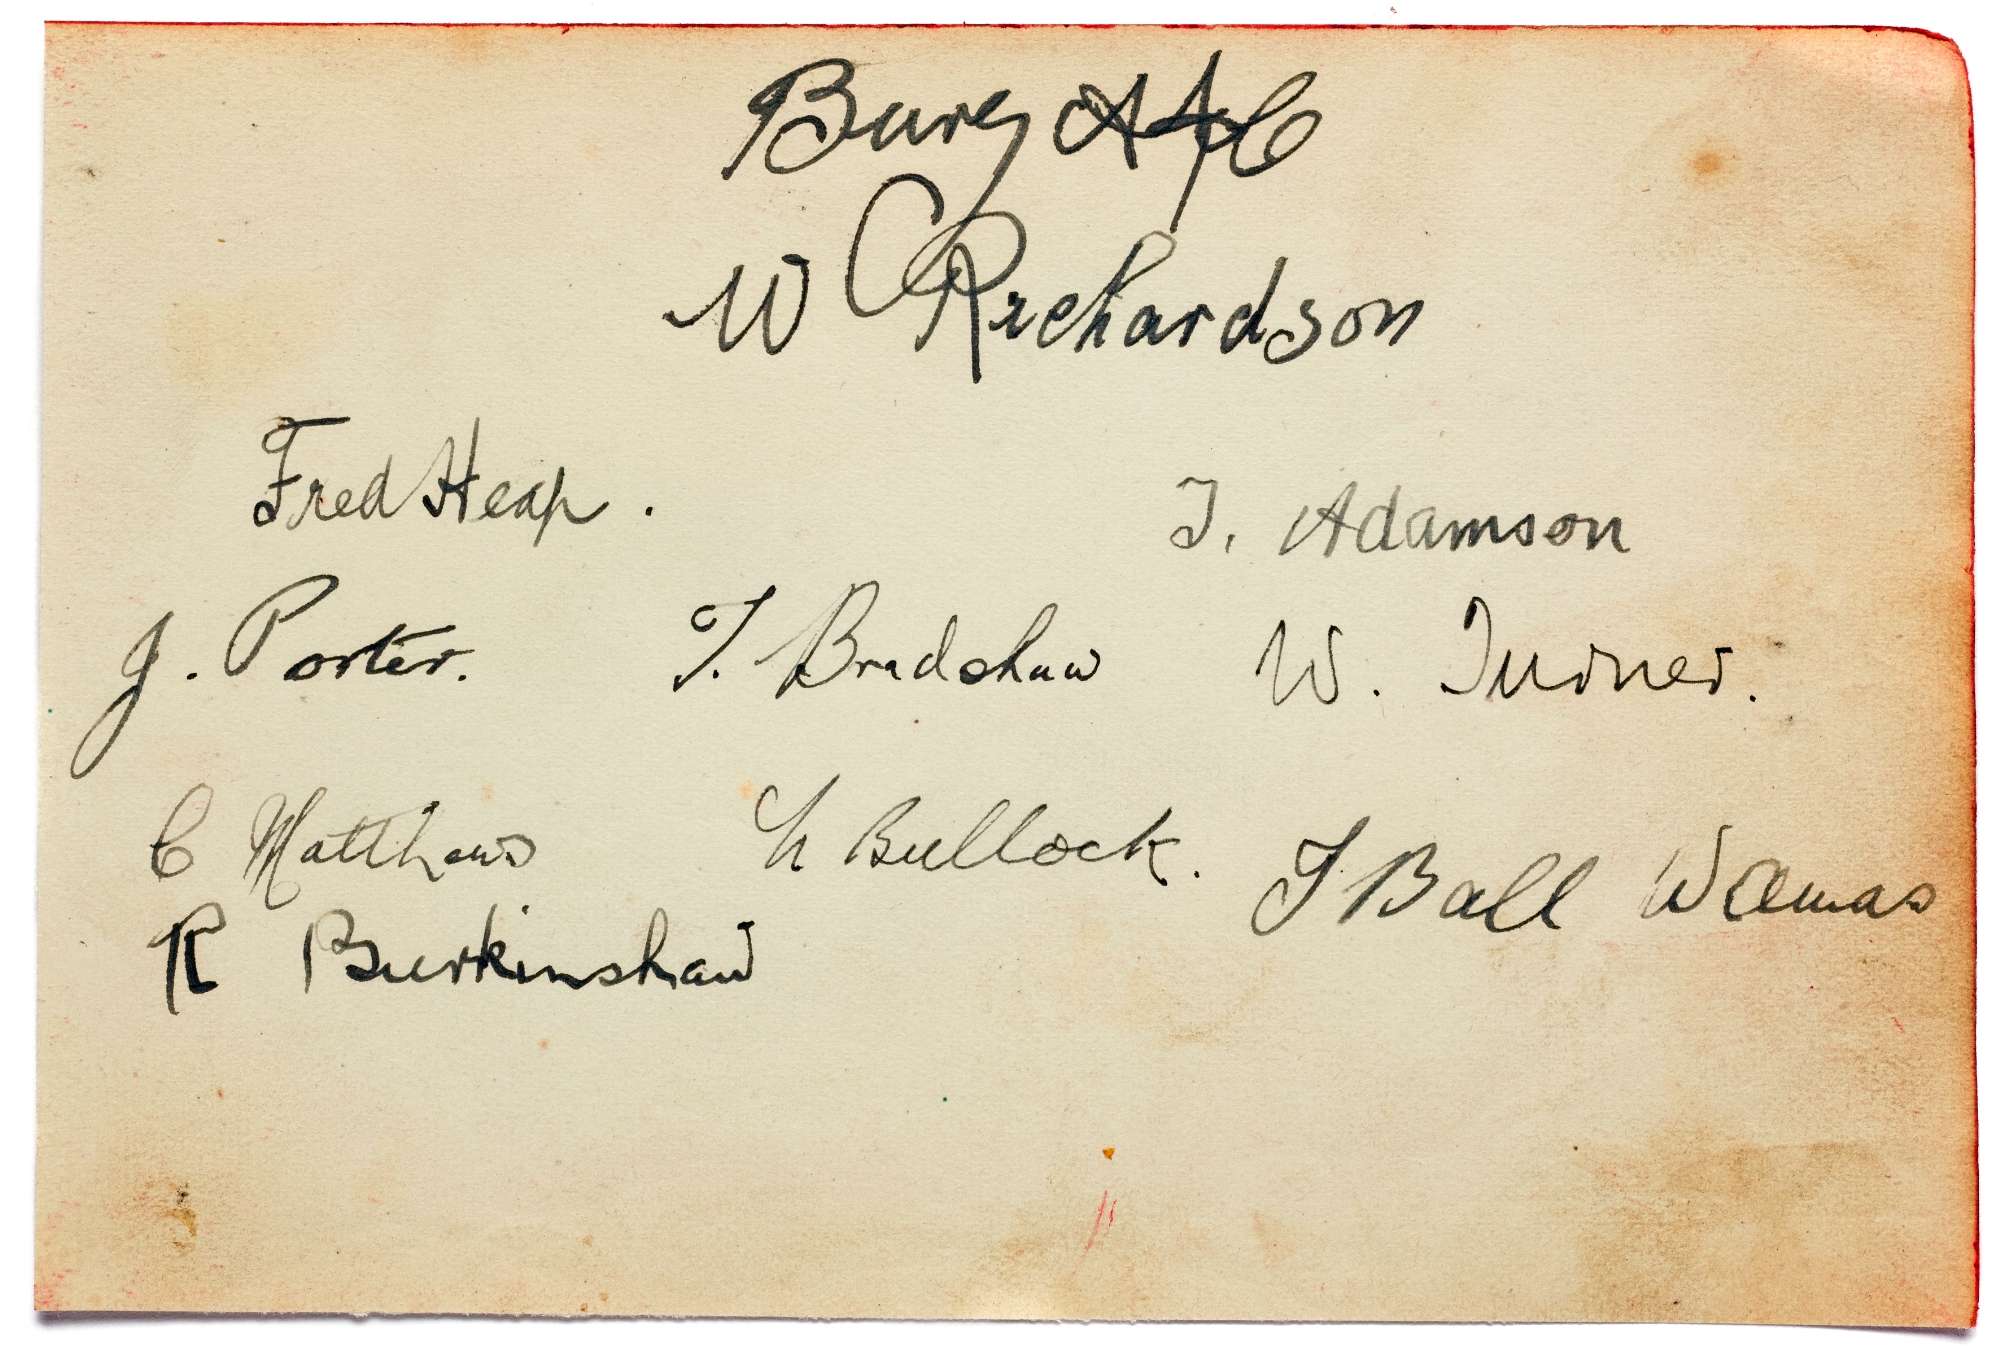 Bury AFC
W Richardson
Fred Heap.
T. Adamson
J. Porter. T. Bradshaw W. Turner.
C Matthews N Bullock. J Ball W Amos
R Burkinshaw